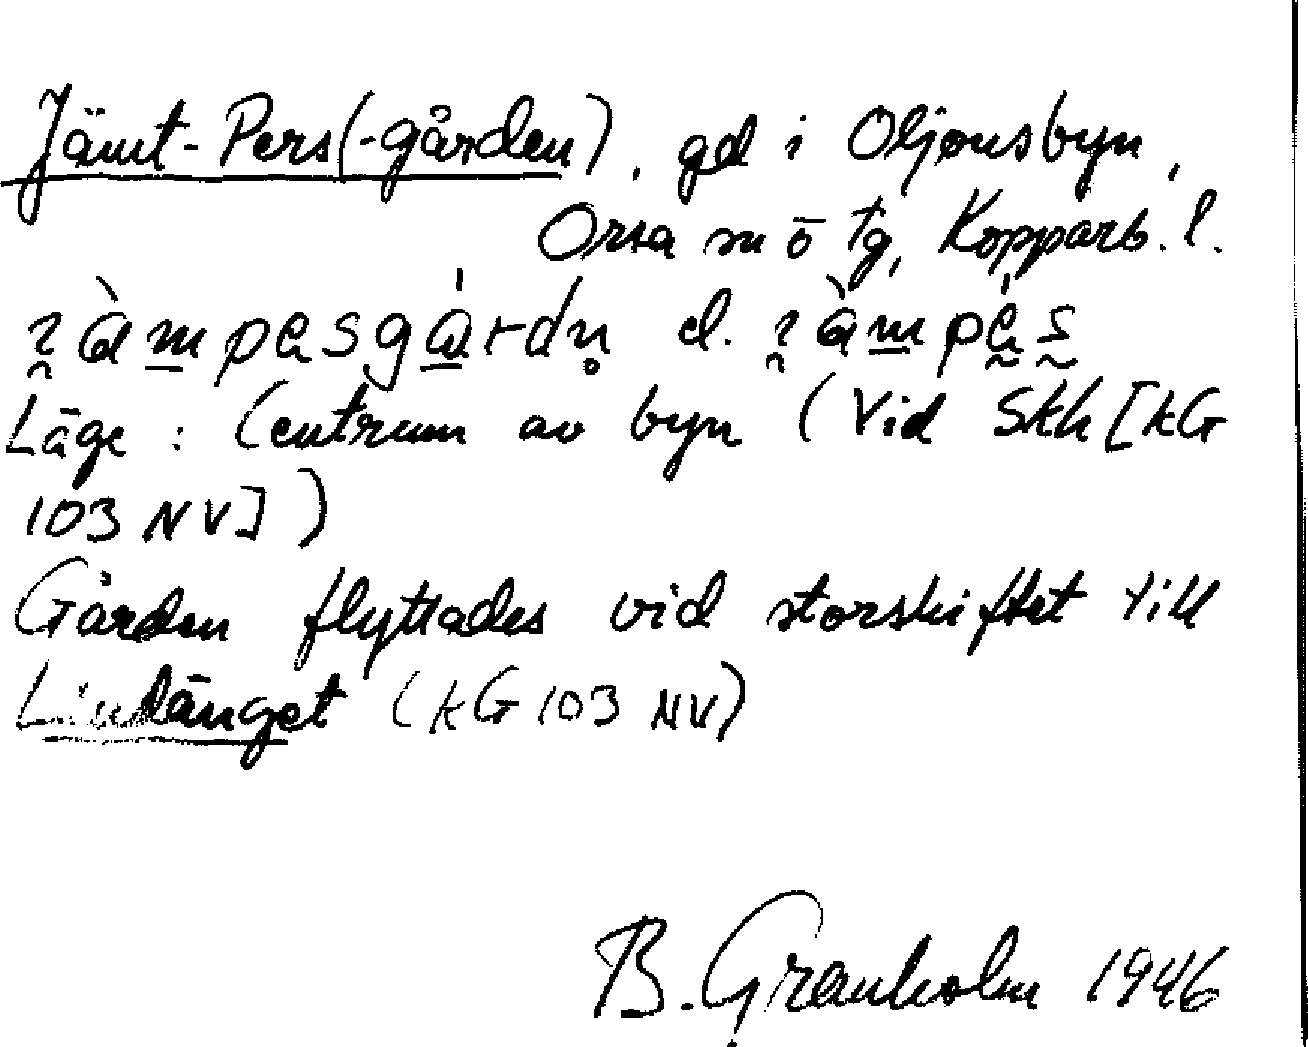 Jämt-Pers(-gården), gd i Oljonsbyn,
Orsa sn o tg, Kopparb. l.
el.
Läge: Centrum av byn (Vid Skh [kG
103 NV])
Gården flyttades vid storskiftet till
Lindänget (kG 103 NV)
B. Granholm 1946